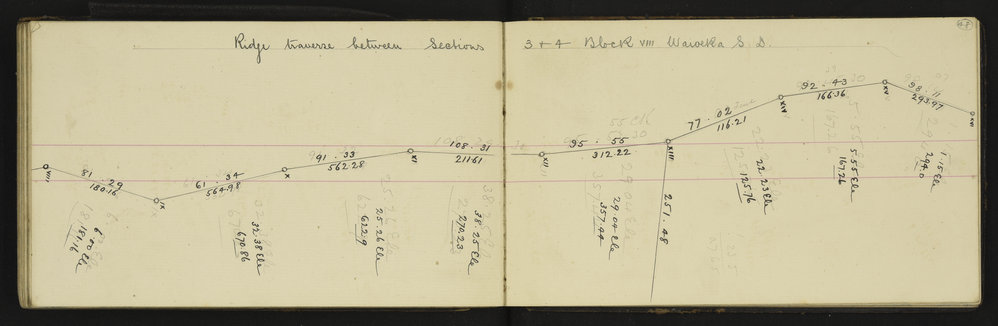 48
Ridge traverse between Sections 3 + 4 Block VIII Waioeka S. D.
VIII
81 . 29
180.16
IX
61 . 34
564.98
X
91 . 33
562.28
XI
108 . 31
211.61
XII
95 . 55
312.22
XIII
77 . 02
116.21
XIV
92 . 43
166.36
XV
98 . 11
293.97
XVI
251.48
181.16
32.38 Ele
670.86
25.26 Ele
622.9
38.25 Ele
270.23
29.04 Ele
357.44
22.23 Ele
125.76
5.55 Ele
167.26
1.15 Ele
294.0